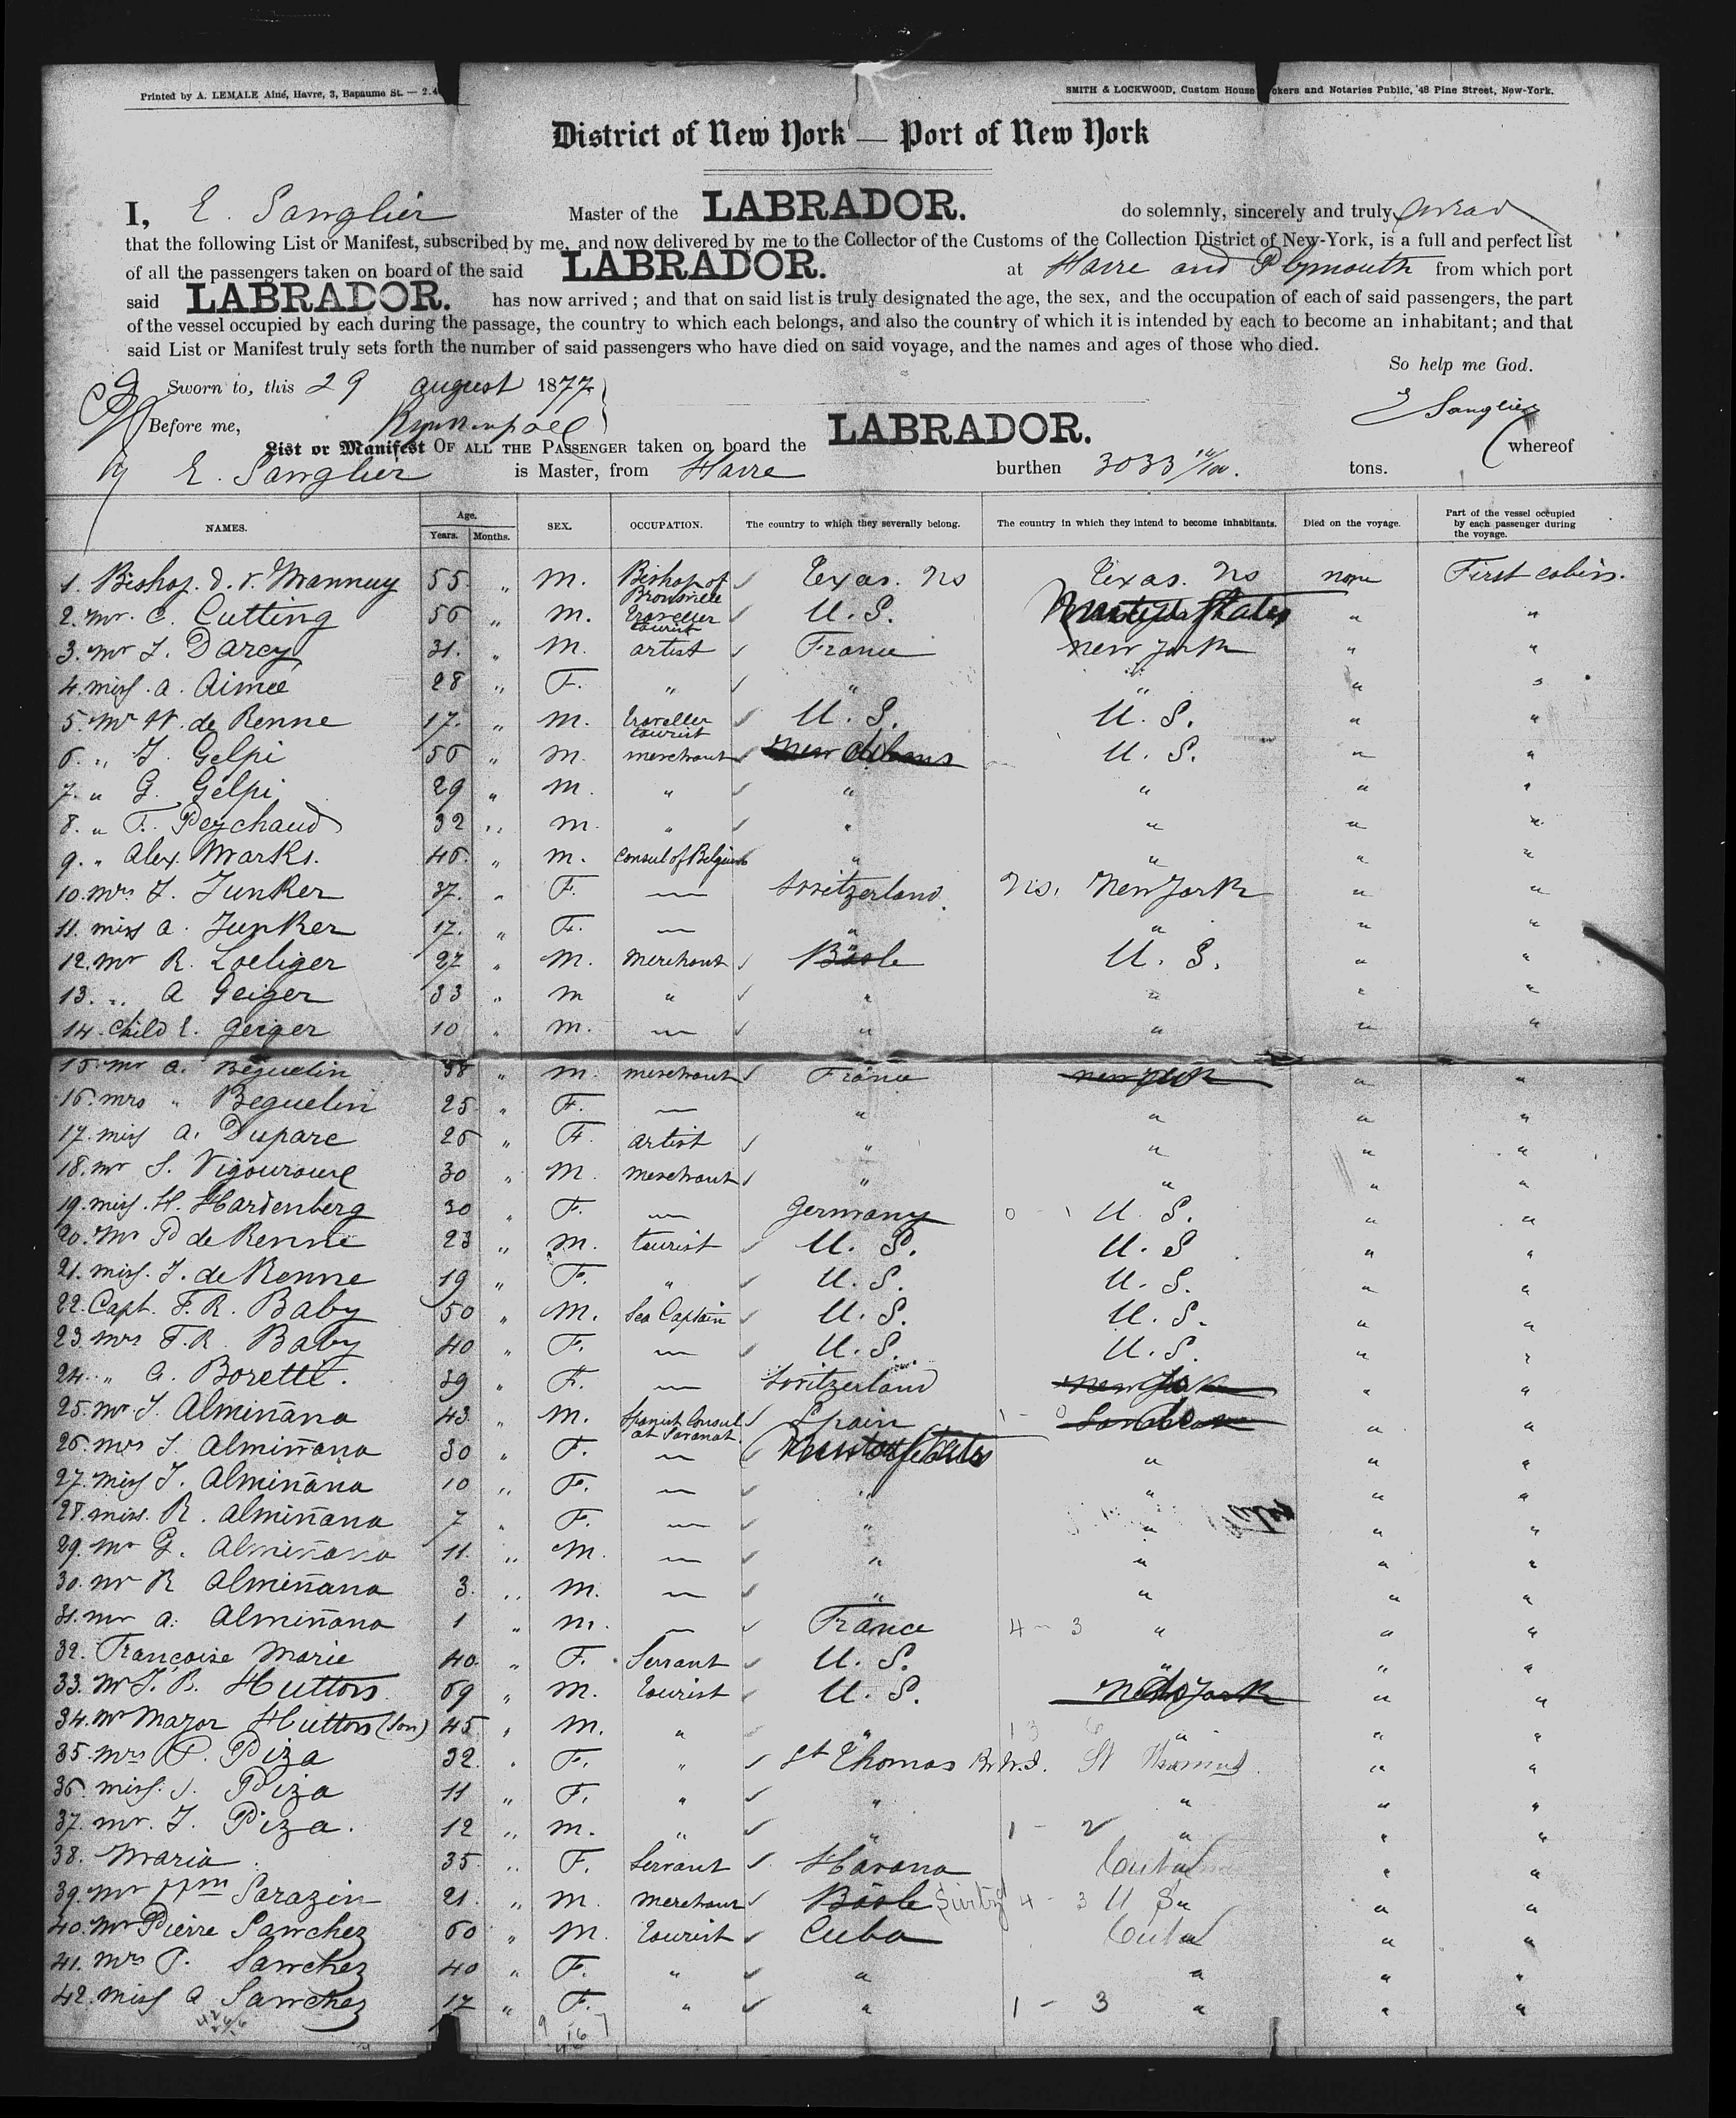 Printed by A. LEMALE Ainé, Havre, 3, Bapaume St. — 2.4
SMITH & LOCKWOOD, Custom House okers and Notaries Public, 48 Pine Street, New-York.
District of New York — Port of New York
I, E. Sanglier Master of the LABRADOR. do solemnly, sincerely and truly swear
that the following List or Manifest, subscribed by me, and now delivered by me to the Collector of the Customs of the Collection District of New-York, is a full and perfect list
of all the passengers taken on board of the said LABRADOR. at Havre and Plymouth from which port
said LABRADOR. has now arrived ; and that on said list is truly designated the age, the sex, and the occupation of each of said passengers, the part
of the vessel occupied by each during the passage, the country to which each belongs, and also the country of which it is intended by each to become an inhabitant; and that
said List or Manifest truly sets forth the number of said passengers who have died on said voyage, and the names and ages of those who died.
So help me God.
Sworn to, this 29 august 1877
E Sanglier
Before me,
List or Manifest OF ALL THE PASSENGER taken on board the LABRADOR. whereof
E. Sanglier is Master, from Havre burthen 3033 tons.
NAMES. Age. Years. Months. SEX. OCCUPATION. The country to which they severally belong. The country in which they intend to become inhabitants. Died on the voyage. Part of the vessel occupied by each passenger during the voyage.
1. Bishop. D. V. Mannuy 55 " M. Bishop of Brownsville Texas. Texas. none First cabin.
2. Mr. C. Cutting 56 " M. traveller tourist U. S. " "
3. Mr J. Darcy 31. " M. artist France New York " "
4. Miss. A. Aimée 28 " F. " " " "
5. Mr W. de Renne 17. " M. traveller tourist U. S. U. S. " "
6. " J. Gelpi 56 " M. merchant New Orleans U. S. " "
7. " G. Gelpi 29 " M. " " " " "
8. " F. Peychaud 32 " M. " " " " "
9. " Alex. Marks. 46. " M. Consul of Belgium " " " "
10. Mrs J. Junker 37. " F. — Switzerland. New York " "
11. Miss A. Junker 17. " F. — " " " "
12. Mr R. Loeliger 27 " M. Merchant Basle U. S. " "
13. " A Geiger 33 " M " " " " "
14. Child E. Geiger 10 " M. — " " " "
15. Mr A. Beguelin 38 " M. merchant France New York " "
16. Mrs " Beguelin 25 " F. — " " " "
17. Miss A. Duparc 26 " F. artist " " " "
18. Mr S. Vigouroux 30 " M. Merchant " " " "
19. Miss. H. Hardenberg 30 " F. — Germany U. S. " "
20. Mr P de Renne 23 " M. tourist U. S. U. S " "
21. Miss. J. de Renne 19 " F. " U. S. U. S. " "
22. Capt. F. R. Baby 50 " M. Sea Captain U. S. U. S. " "
23 Mrs F. R. Baby 40 " F. — U. S. U. S. " "
24. " A. Boretti. 39 " F. — Switzerland New York " "
25. Mr J. Almiñana 43 " M. Spanish Consul at Savanah Spain " "
26. Mrs J. Almiñana 30 " F. — " " "
27. Miss J. Almiñana 10 " F. — " " " "
28. Miss. R. Almiñana 7 " F. — " " " "
29. Mr G. Almiñana 11. " M. — " " " "
30. Mr R Almiñana 3. " M. — " " " "
31. Mr A. Almiñana 1 " M. — France 4 - 3 " " "
32. Françoise Marie 40. " F. Servant U. S. " " "
33. Mr J. B. Hutton 69 " M. tourist U. S. New York " "
34. Mr Major Hutton (Son) 45 " M. " " " " "
35. Mrs P. Piza 32. " F. " St Thomas St Thomas " "
36 Miss. J. Piza 11 " F. " " " " "
37. Mr. J. Piza. 12 " M. " " 1 - 2 " " "
38. Maria 35 " F. Servant Havana Cuba " "
39. Mr Sarazin 21. " M. Merchant Basle 4 - 3 U S " "
40. Mr Pierre Sanchez 60 " M. tourist Cuba Cuba " "
41. Mrs P. Sanchez 40 " F. " " " " "
42. Miss A Sanchez 17 " F. " " 1 - 3 " " "